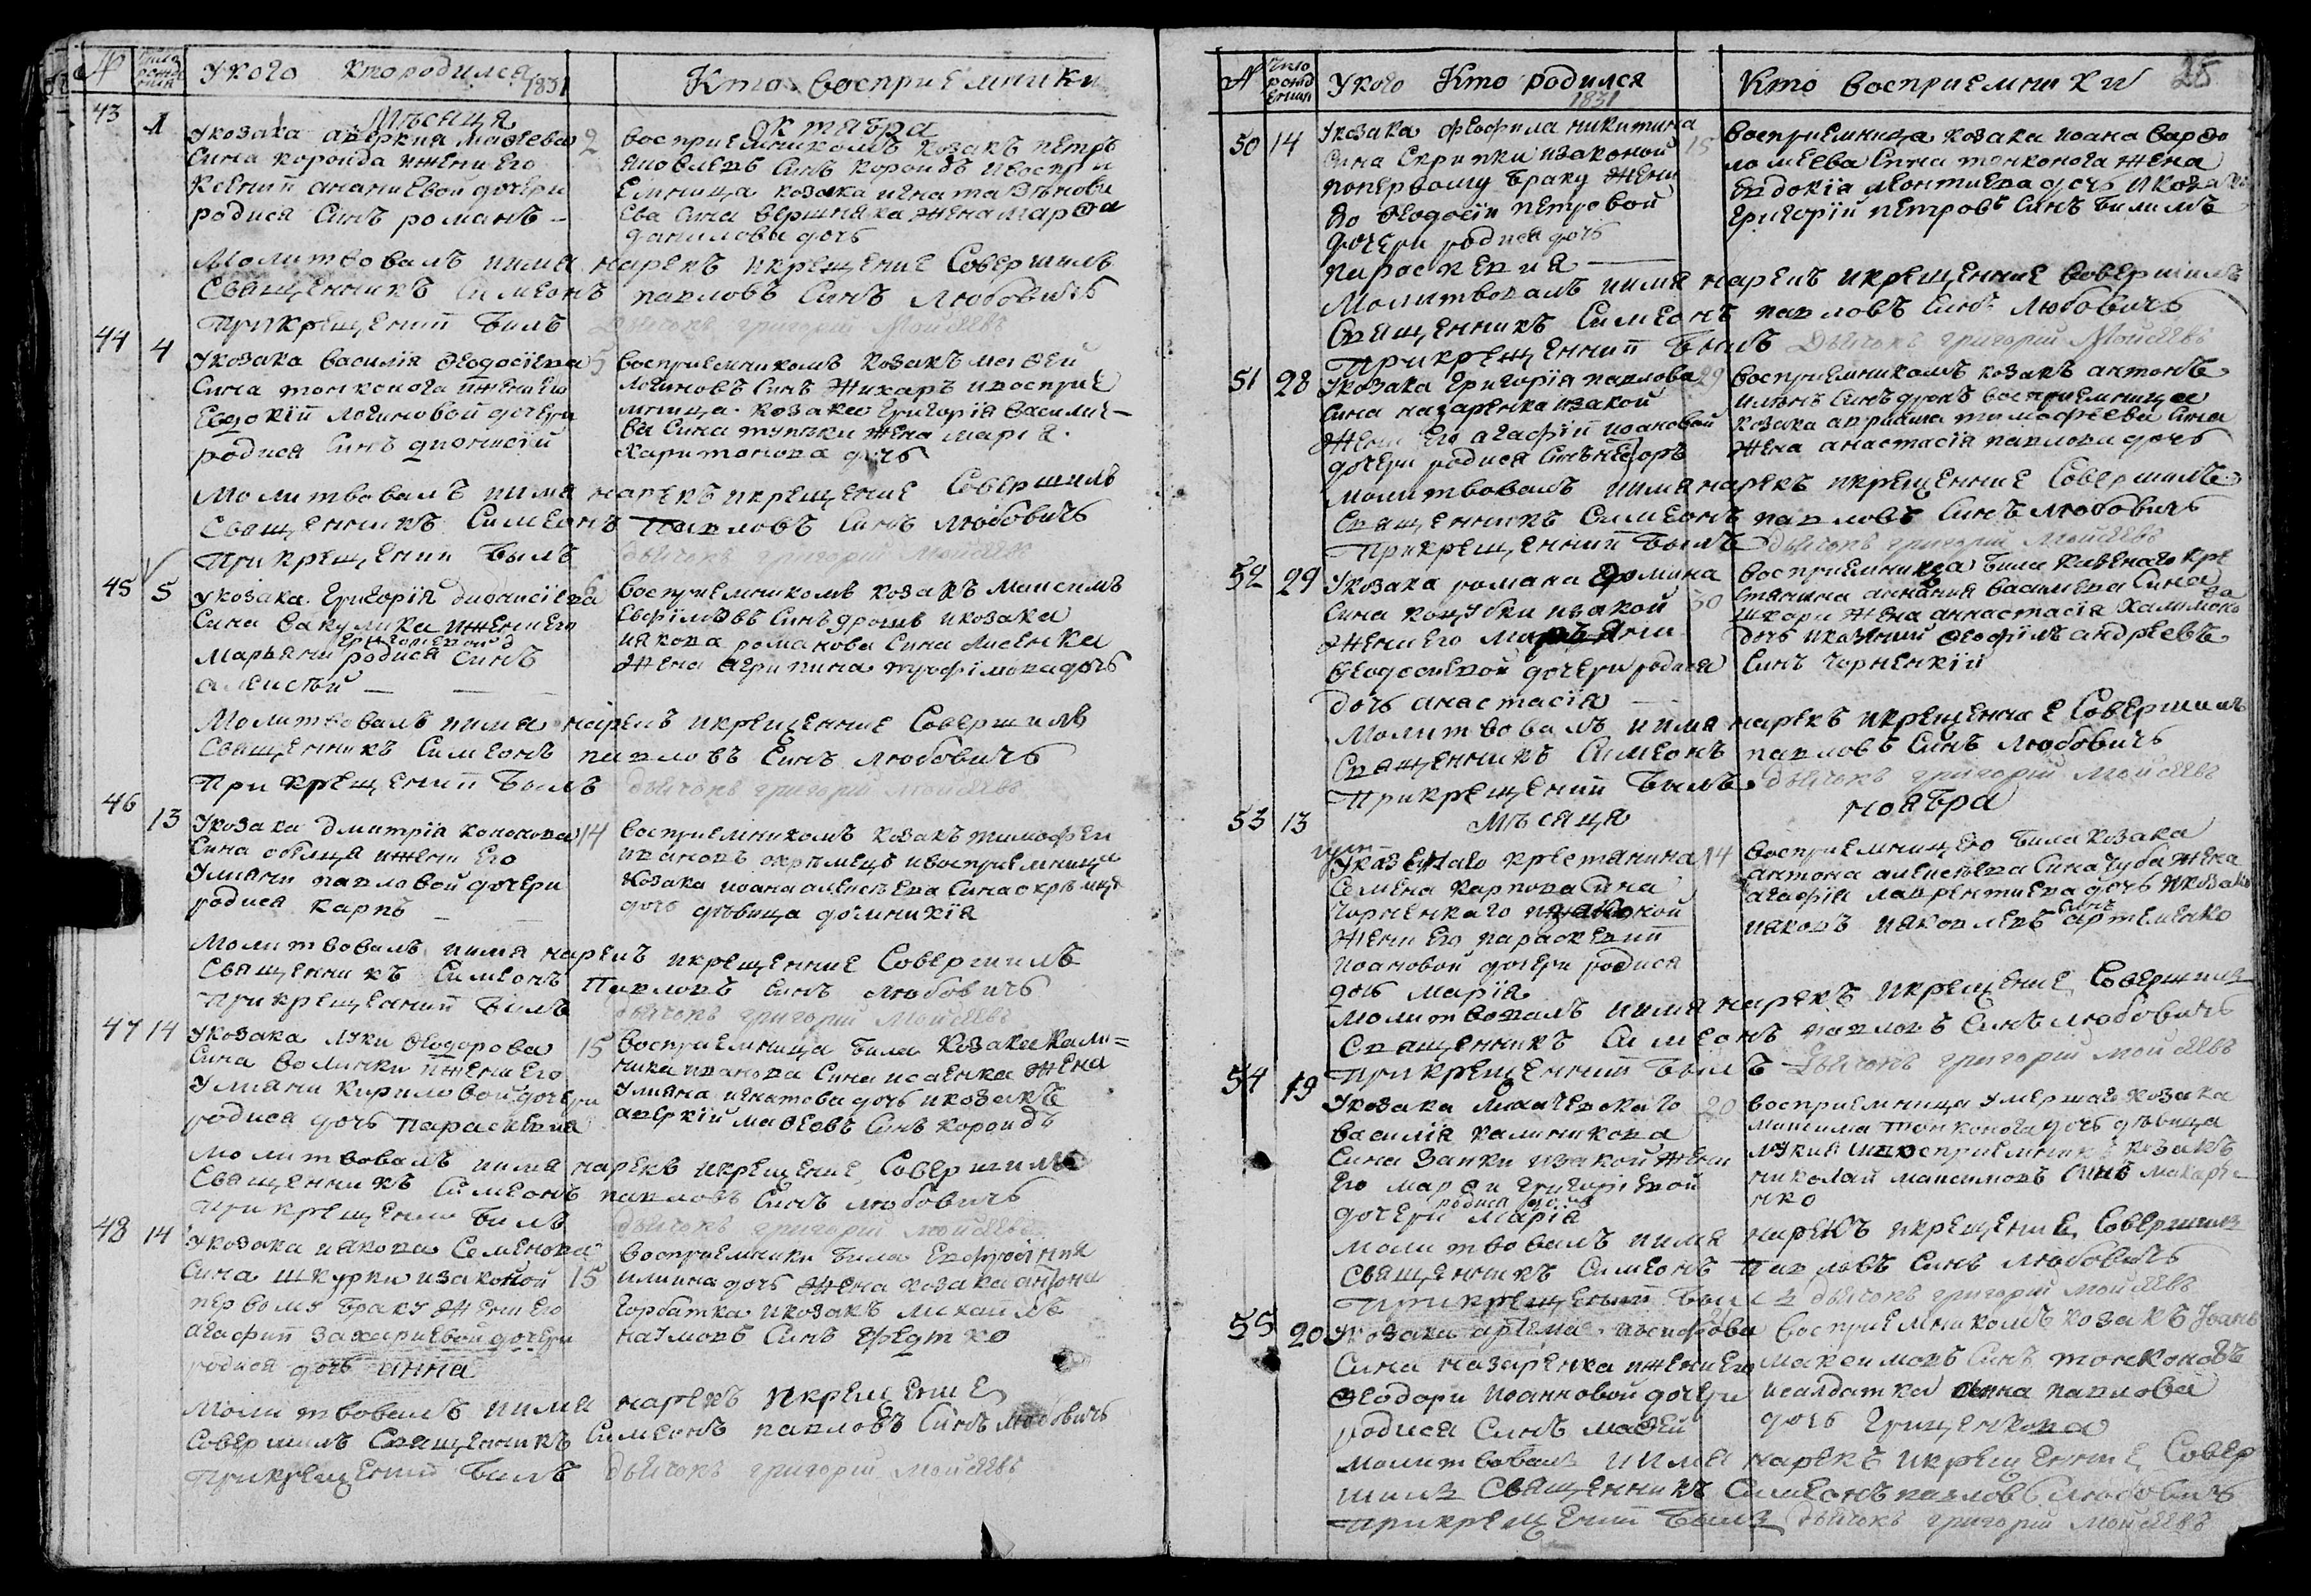 № число рождения У кого кто родился 1831 Кто восприемники
Месяца октабра
43 1 У козака аверкия мафеева 2 восприемникомъ козакъ петръ
сина короида и жени его яковлевъ синъ короидъ и воспри
ксении ананиевой дочери емница козака игната
родися синъ романъ — ева сина вершняка жена марфа
данилова дочь
Молитвовалъ и имя нарекъ и крещение Совершилъ
Священникъ Симеонъ павловъ Синъ Любовичъ
При крещении былъ Дьячокъ григорий Мойсеевъ
44 4 У козака василия феодосиева 5 восприемникомъ козакъ мафей
Сина тонконога и жени его логиновъ Синъ Жихаръ и восприе
Евдокии логиновой дочери мница козака григория василие-
родися Синъ дионисий ва Сина тупики жена мария
Харитонова дочь
Молитвовалъ и имя нарекъ и крещение Совершилъ
Священникъ Симеонъ Павловъ Синъ Любовичъ
При крещении былъ дьячокъ григорий Мойсеевъ
45 5 У козака григория дионисиева 6 восприемникомъ козакъ максимъ
Сина вакулика и жени его Евфимовъ Синъ и козака
Марьяни родися Синъ иякова романова Сина лисенка
алексей — жена агрипина трофимова дочь
Молитвовалъ и имя нарекъ и крещение Совершилъ
Священникъ Симеонъ павловъ Синъ Любовичъ
При крещении былъ дьячокъ григорий Мойсеевъ
46 13 У козака дмитрия кононова 14 восприемникомъ козакъ тимофей
Сина и жени его ивановъ охремецъ и восприемница
Улияни павловой дочери козака иоана алексеева Сина охремца
родися карпъ — дочь девица домникия
Молитвовалъ и имя нарекъ и крещение Совершилъ
Священникъ Симеонъ Павловъ Синъ Любовичъ
При крещении былъ дьячокъ григорий Мойсеевъ
47 14 У козака луки феодорова 15 восприемница била козака кали-
Сина волички и жени его ника иванова Сина исаенка жена
Улияни кириловой дочери Улияна игнатова дочь и козакъ
родися дочь параскевия аверкий мафеевъ Синъ короидъ
Молитвовалъ и имя нарекъ и крещение Совершилъ
Священникъ Симеонъ павловъ Синъ Любовичъ
При крещении билъ дьячокъ григорий Мойсеевъ
48 14 У козака иякова Семенова восприемники била Евфросиния
Сина шкурки и законой 15 илиина дочь жена козака антона
первому браку жени его горбатка и козакъ михаилъ
агафии захариевой дочери наумовъ Синъ
родися дочь анна
Молитвовалъ и имя нарекъ и крещение
Совершилъ Священникъ Симеонъ павловъ Синъ Любовичъ
При крещении билъ дьячокъ григорий Мойсеевъ
25
№ число рождения У кого Кто родился 1831 Кто восприемники
50 14 У козака феофила никитина 15 восприемница козака иоана варфо
сина Скрипки и законой ломеева Сина тонконога жена
по первому браку жени Евдокия леонтиева дочь и козакъ
его феодосии петровой григорий петровъ Синъ билимъ
дочери родися дочь
параскевия —
Молитвовалъ и имя нарекъ и крещение Совершилъ
Священникъ Симеонъ павловъ Синъ Любовичъ
При крещении былъ Дьячокъ григорий Мойсеевъ
51 28 У козака григория павлова 29 восприемникомъ козакъ антонъ
Сина назаренка и закой Синъ восприемница
жени его агафии иоановой козака авраама тимофеева Сина
дочери родися Синъ несторъ жена анастасия павлова дочь
Молитвовалъ и имя нарекъ и крещение Совершилъ
Священникъ Симеонъ павловъ Синъ Любовичъ
При крещении былъ дьячокъ григорий Мойсеевъ
52 29 У козака романа 30 восприемника била казенаго кре
Сина коцубки и закой стянина анания василиева Сина
жени его Марьяни шкари жена анастасия
феодосиевой дочери родися дочь и козений феофилъ андреевъ
дочь анастасия Синъ чорненкий
Молитвовалъ и имя нарекъ и крещение Совершилъ
Священникъ Симеонъ павловъ Синъ Любовичъ
При крещении былъ дьячокъ григорий Мойсеевъ
Месяца ноябра
53 13 У казенаго крестянина 14 восприемницею била козака
Семена карпова Сина антона алексеева Сина чуба жена
чорненкаго и законой агафия лаврентиева дочь и козакъ
жени его параскевии ияковъ ияковлевъ Синъ артеменко
иоановой дочери родися
дочь мария
Молитвовалъ и имя нарекъ и крещение Совершилъ
Священникъ Симеонъ павловъ Синъ Любовичъ
При крещении былъ Дьячокъ григорий мойсеевъ
54 19 У козака 20 восприемница умершаго козака
василия калиникова максима тонконога дочь девица
Сина Заики и закой жени и восприемникъ козакъ
его марфи григориевой николай максимовъ Синъ макаре-
дочери родися дочь Мария нко
Молитвовалъ и имя нарекъ и крещение Совершилъ
Священникъ Симеонъ Павловъ Синъ Любовичъ
При крещении былъ дьячокъ григорий мойсеевъ
55 20 У козака артема иосифова восприемникомъ козакъ Іоанъ
Сина назаренка и жени его максимовъ Синъ тонконогъ
феодори иоанновой дочери и салдатка анна павлова
родися Синъ мафей дочь грищенкова
Молитвовалъ и имя нарекъ и крещение Совер
шилъ Священникъ Симеонъ павловъ Любовичъ
При крещении былъ дьячокъ григорий Мойсеевъ